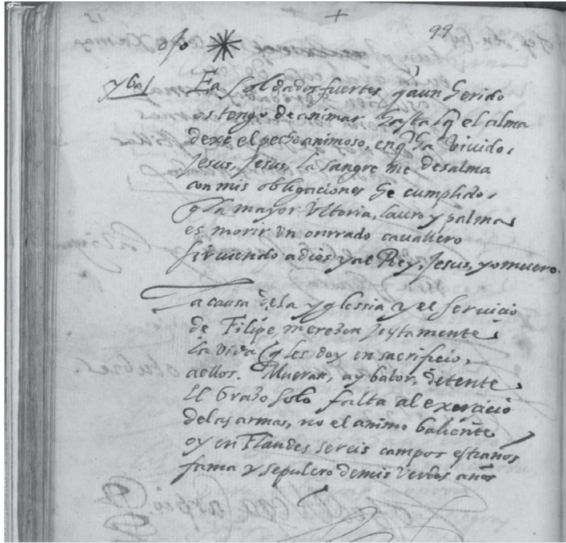 99
ojo
yba
Ea soldados fuertes q̃ aun herido
os tengo de animar hasta q̃ el alma
dexe el pecho animoso, en q̃ ha viuido,
Jesus, Jesus, la sangre me desalma
con mis obligaciones he cumplido,
q̃ la mayor vitoria, lauro y palma
es morir vn onrrado cauallero
siruiendo a dios y al Rey, Jesus, yo muero.
La causa de la yglessia y el seruicio
de Filipe merezen justamente
la vida q̃ les doy en sacrificio,
a ellos. Mueran, ay balor, detente
El brazo solo falta al exercicio
de las armas, no el animo baliente
oy en Flandes sereis campos estraños
fama y sepulcro de mis verdes años